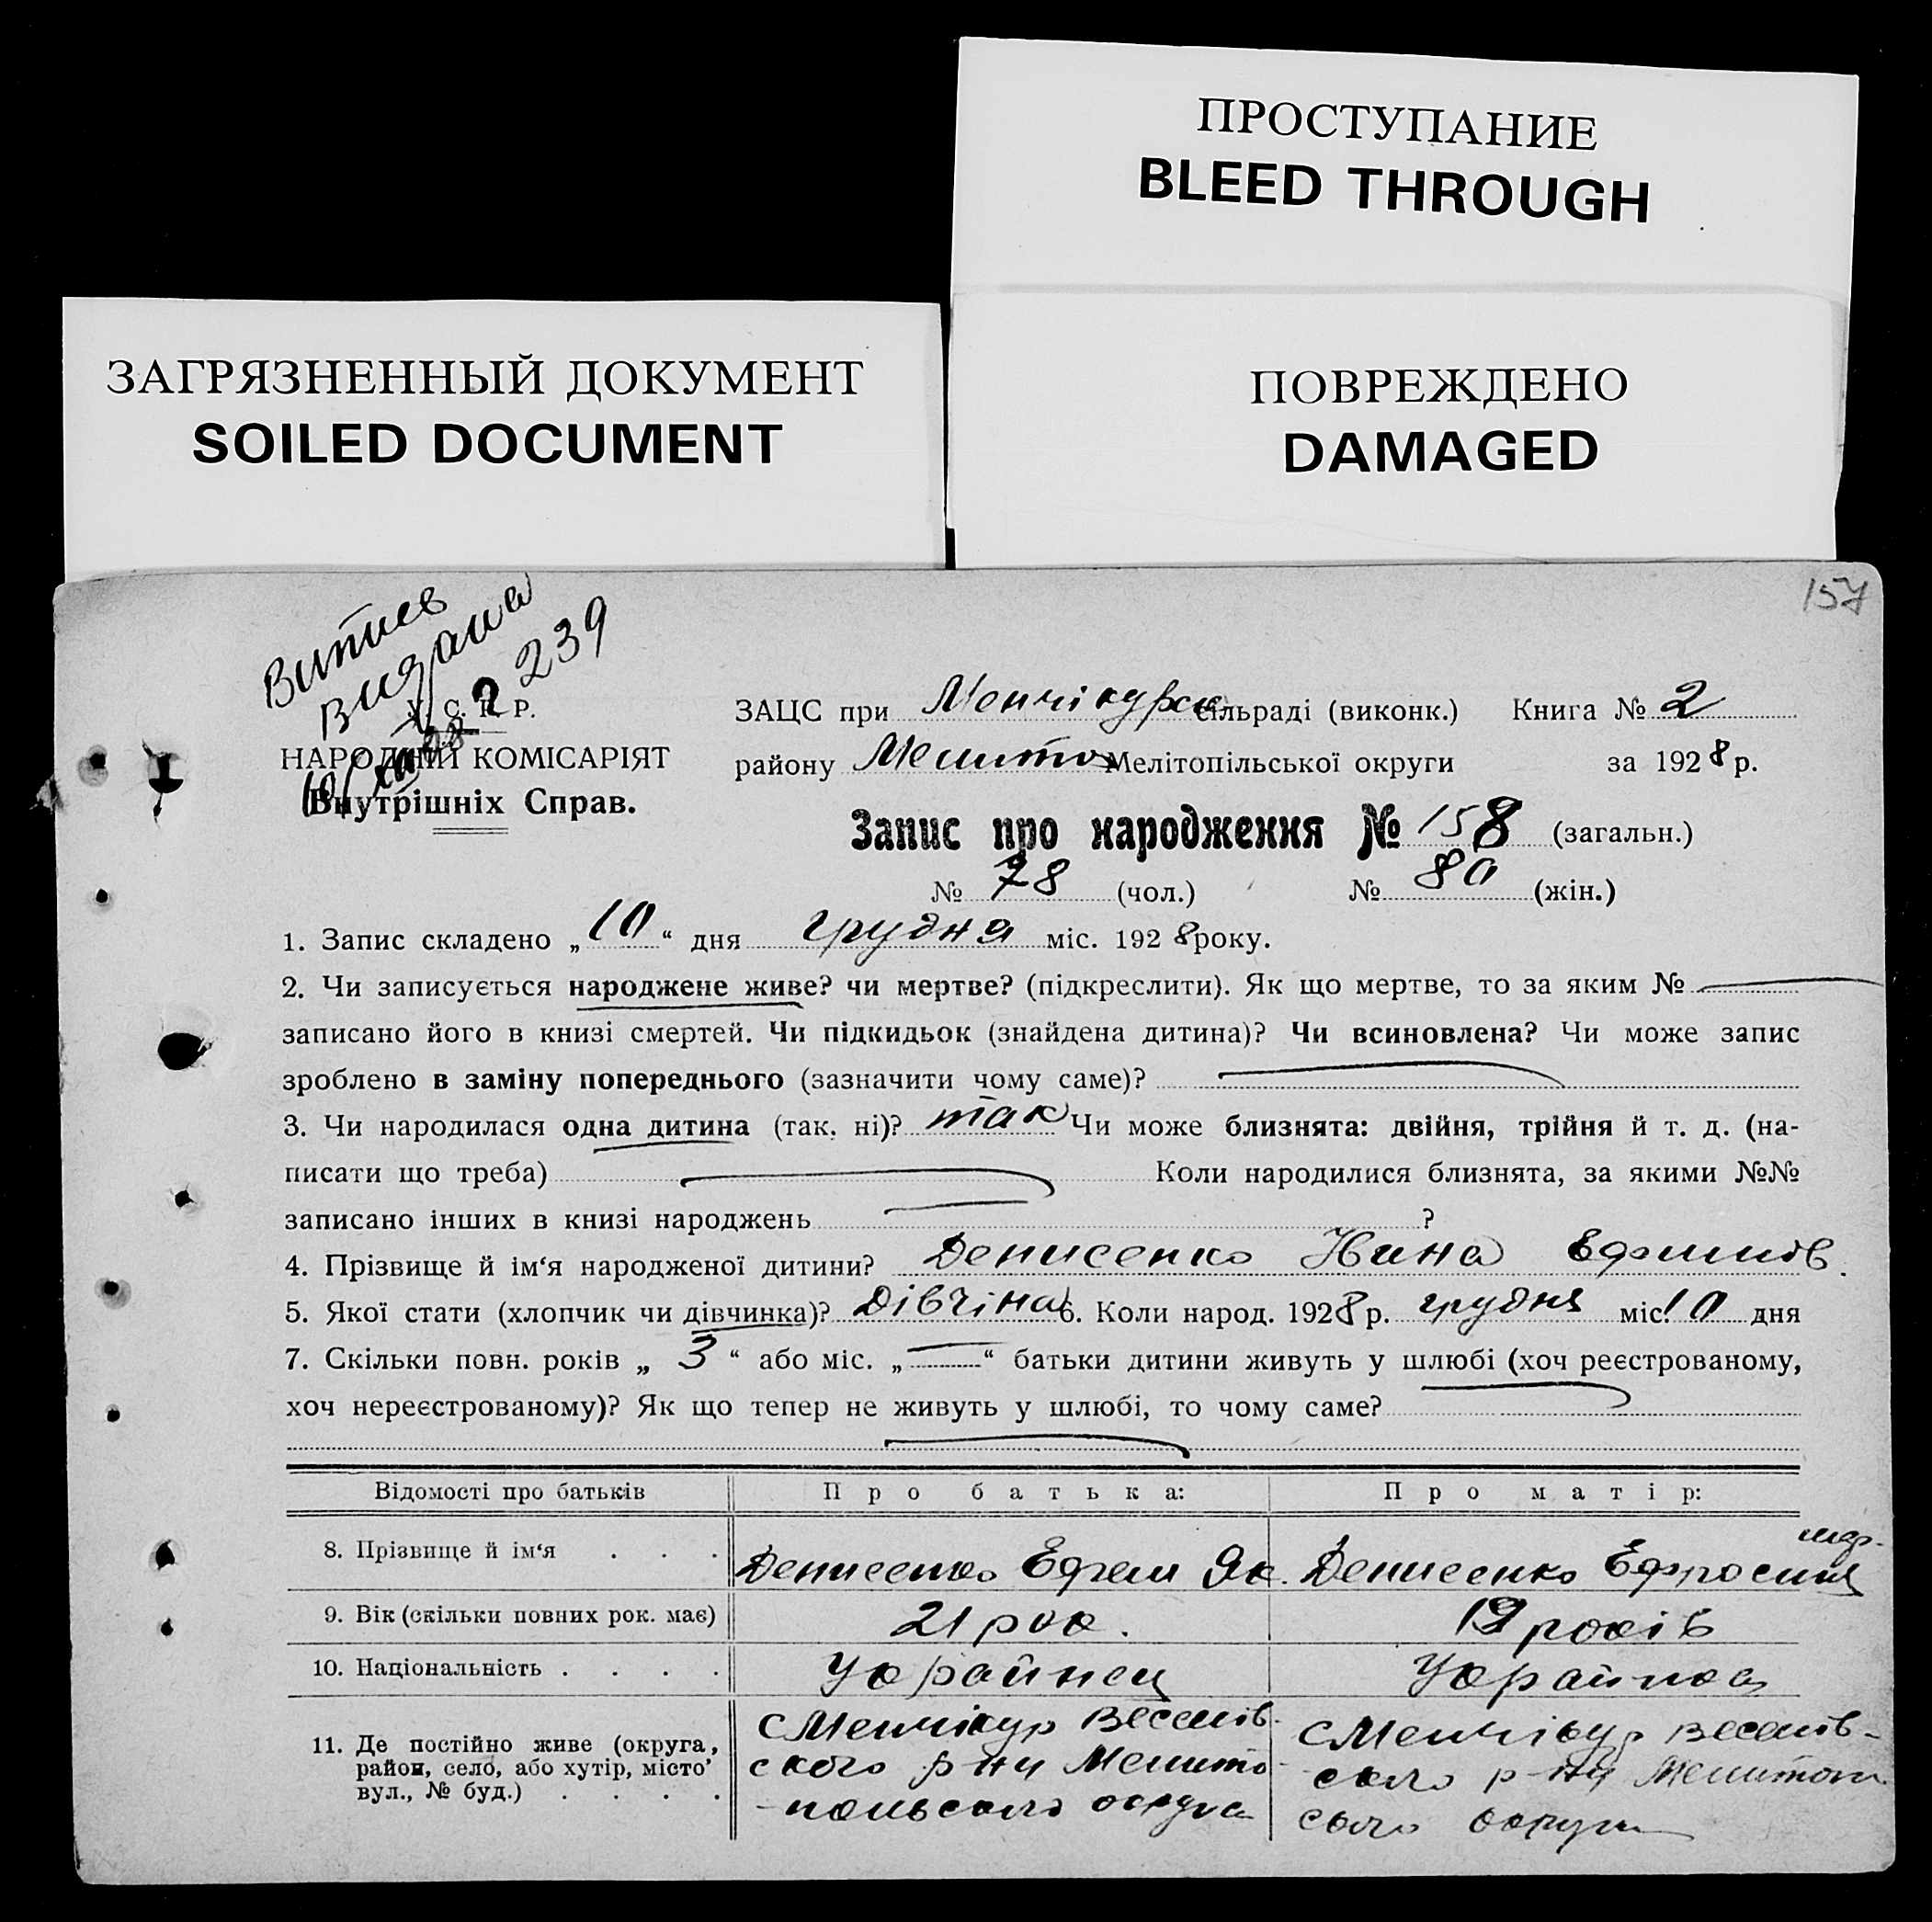 ПРОСТУПАНИЕ
BLEED THROUGH
ЗАГРЯЗНЕННЫЙ ДОКУМЕНТ
SOILED DOCUMENT
ПОВРЕЖДЕНО
DAMAGED
157
239
У. С. Р. Р.
НАРОДНІЙ КОМІСАРІЯТ
Внутрішніх Справ.
ЗАЦС при Менчікурск сільраді (виконк.) Книга № 2
району Мелито Мелітопільської округи за 1928 р.
Запис про народження № 158 (загальн.)
№ 78 (чол.) № 80 (жін.)
1. Запис складено „10“ дня грудня міс. 1928 року.
2. Чи записується народжене живе? чи мертве? (підкреслити). Як що мертве, то за яким №
записано його в книзі смертей. Чи підкидьок (знайдена дитина)? Чи всиновлена? Чи може запис
зроблено в заміну попереднього (зазначити чому саме)?
3. Чи народилася одна дитина (так, ні)? так Чи може близнята: двійня, трійня й т. д. (на-
писати що треба) Коли народилися близнята, за якими №№
записано інших в книзі народжень ?
4. Прізвище й ім‘я народженої дитини? Денисенко Нина Ефимів.
5. Якої стати (хлопчик чи дівчинка)? Дівчіна 6. Коли народ. 1928 р. грудня міс. 10 дня
7. Скільки повн. років „3“ або міс. „—“ батьки дитини живуть у шлюбі (хоч реєстрованому,
хоч нереєстрованому)? Як що тепер не живуть у шлюбі, то чому саме?
Відомості про батьків Про батька: Про матір:
8. Прізвище й ім‘я . . . Денисенко Ефем Як. Денисенко Ефросиня
9. Вік (скільки повних рок. має) 21 рок. 19 років
10. Національність . . . . Украйнец Украйнка
11. Де постійно живе (округа, район, село, або хутір, місто, вул., № буд.) . . . .
с Менчікур Веселів-
ского р-ну Мелито-
-польского округа
с Менчікур Веселів-
ского р-ну Мелитоп.
ского округа